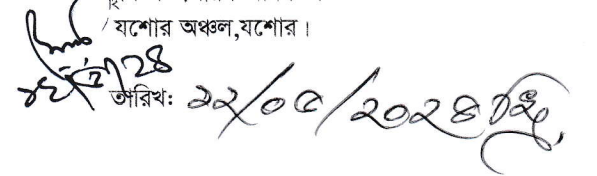 যশোর অঞ্চল,যশোর।
তারিখ: ২২/০৫/২০২৪ খ্রি.